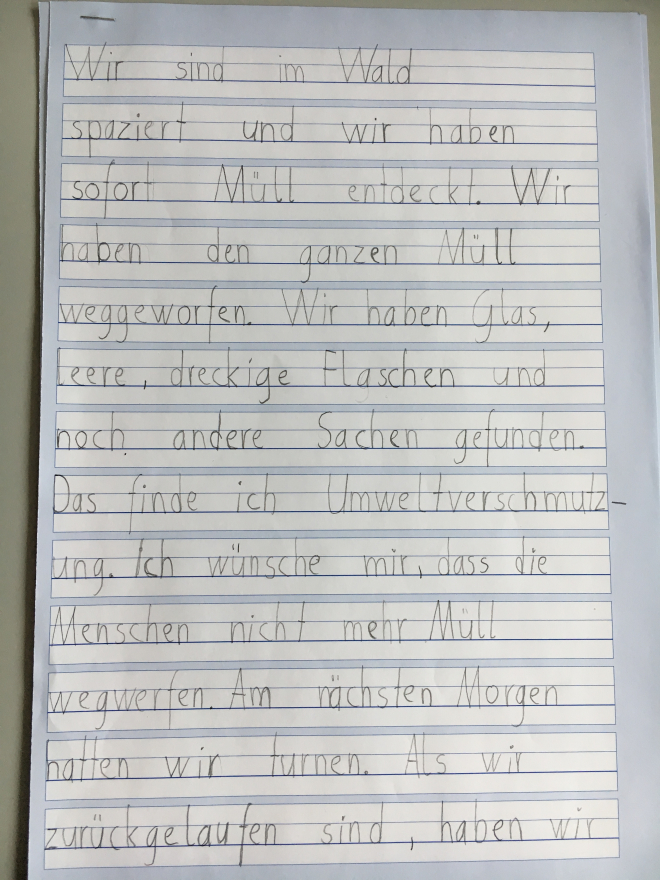 Wir sind im Wald
spaziert und wir haben
sofort Müll entdeckt. Wir
haben den ganzen Müll
weggeworfen. Wir haben Glas,
leere, dreckige Flaschen und
noch andere Sachen gefunden.
Das finde ich Umweltverschmutz-
ung. Ich wünsche mir, dass die
Menschen nicht mehr Müll
wegwerfen. Am nächsten Morgen
hatten wir turnen. Als wir
zurückgelaufen sind, haben wir